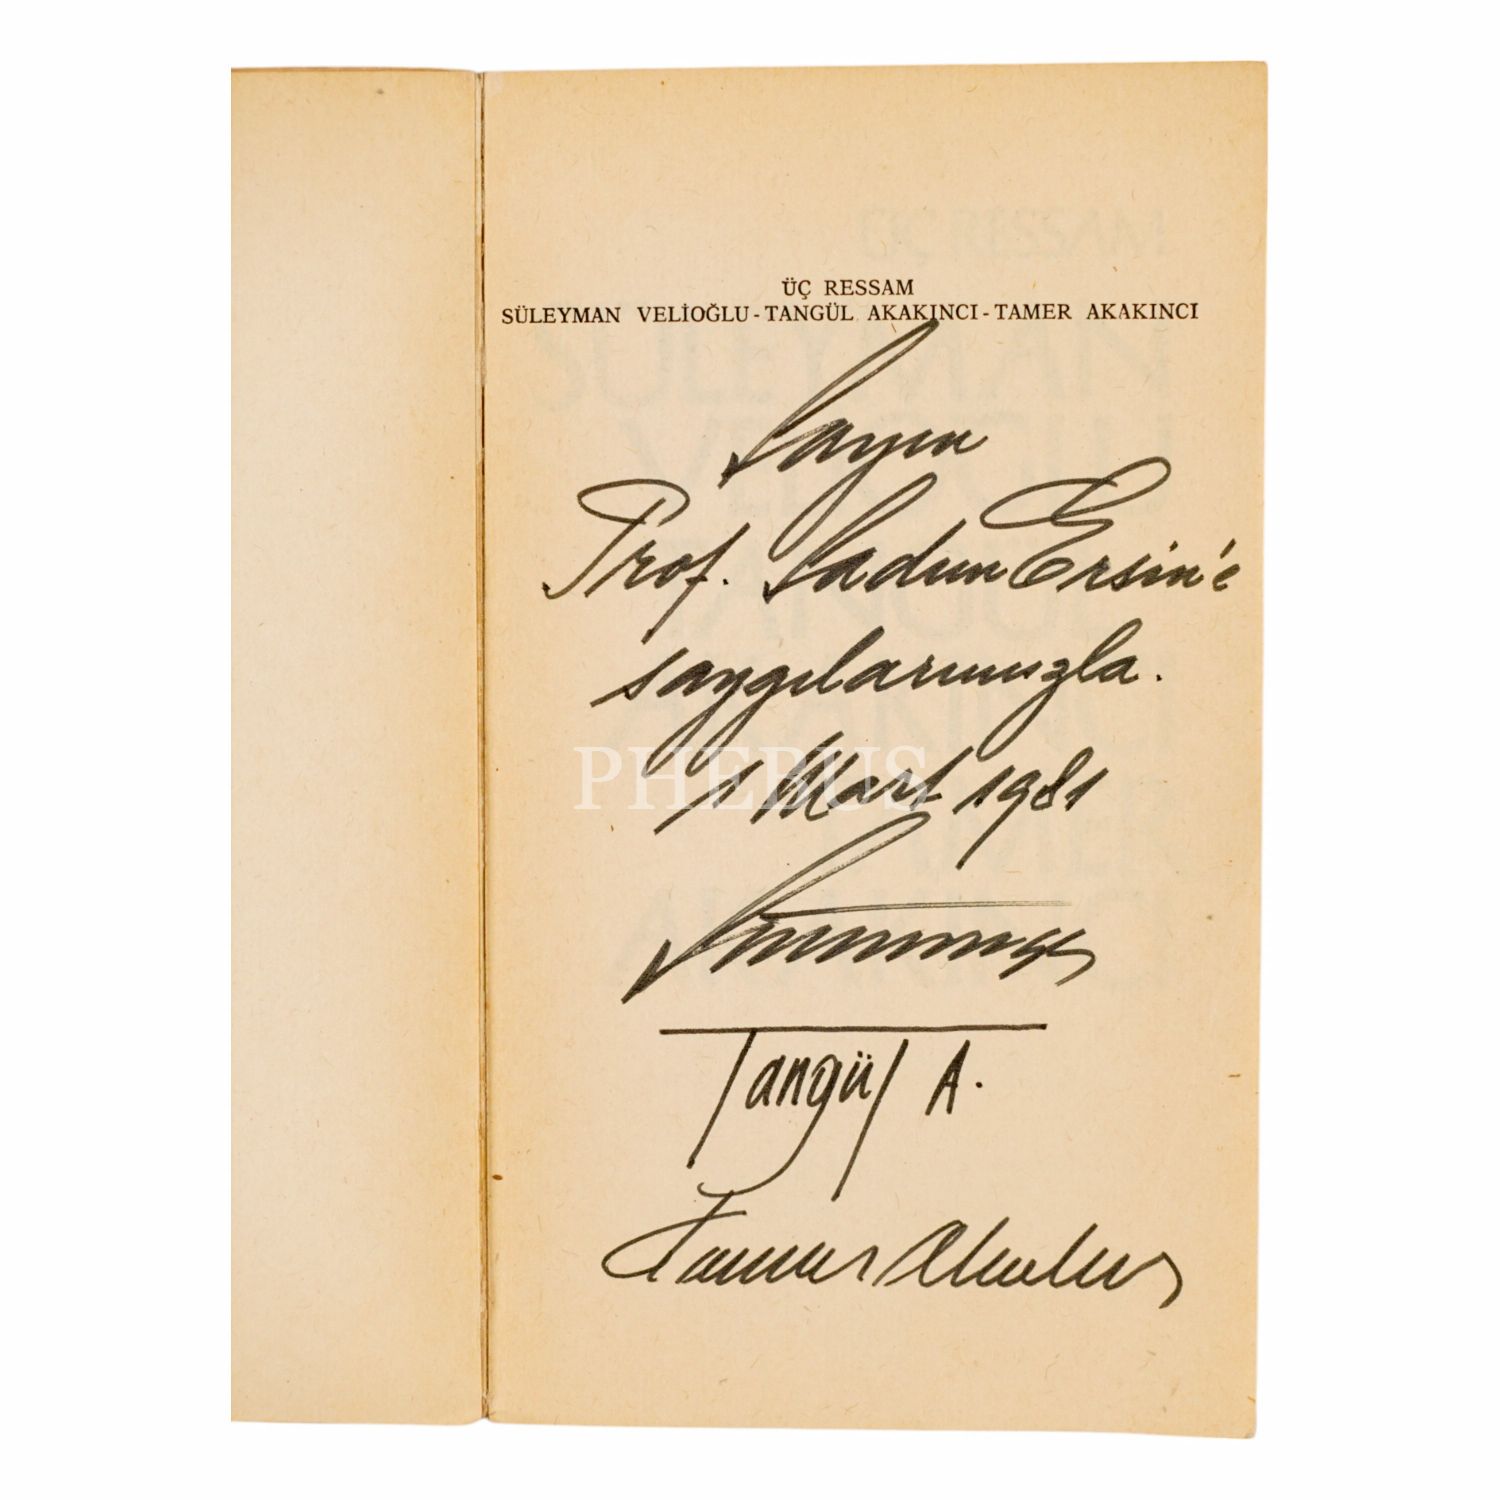 ÜÇ RESSAM
SÜLEYMAN VELİOĞLU-TANGÜL AKAKINCI-TAMER AKAKINCI
Sayın
Prof. Sadun Ersin'e
saygılarımızla.
1 Mart 1981
PHEBUS
Tangül A.
Tamer Akakıncı